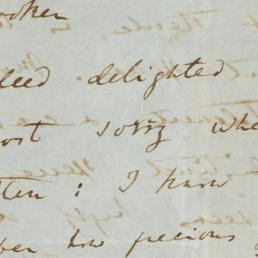 ooker
deed delighted
ost sorry whe
tten : I know
ber how precious